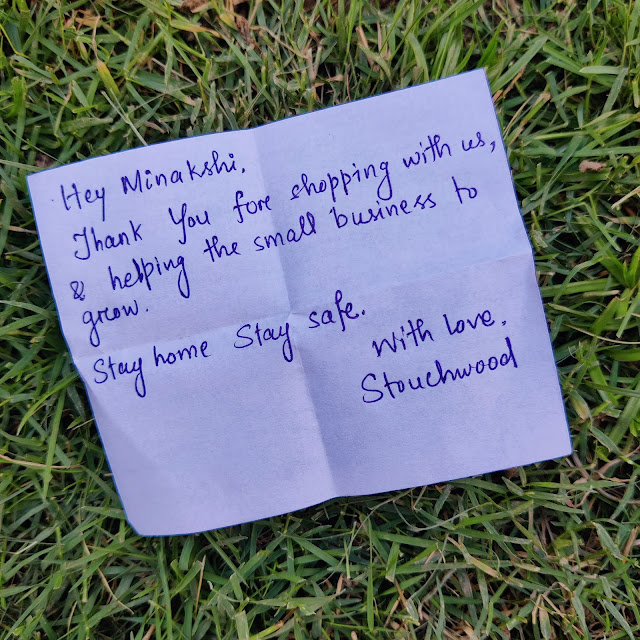 Hey Minakshi,
Thank You fore shopping with us,
& helping the small business to
grow.
Stay home Stay safe.
With love.
Stouchwood